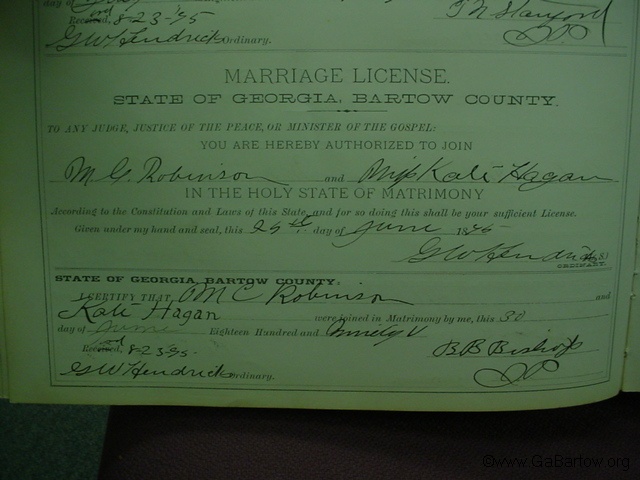 day of
Rec'd 8-23-95
T N Stanford
G W Hendricks Ordinary.
J P
MARRIAGE LICENSE.
STATE OF GEORGIA, BARTOW COUNTY.
TO ANY JUDGE, JUSTICE OF THE PEACE, OR MINISTER OF THE GOSPEL:
YOU ARE HEREBY AUTHORIZED TO JOIN
M C Robinson and Miss Kate Hagan
IN THE HOLY STATE OF MATRIMONY
According to the Constitution and Laws of this State, and for so doing this shall be your sufficient License.
Given under my hand and seal, this 29th day of June 1895
G W Hendricks
ORDINARY.
STATE OF GEORGIA, BARTOW COUNTY:
I CERTIFY THAT M C Robinson and
Kate Hagan were joined in Matrimony by me, this 30
day of June Eighteen Hundred and Ninety V
8-23-95
B B Bishop
G W Hendricks Ordinary.
J P
©www.GaBartow.org